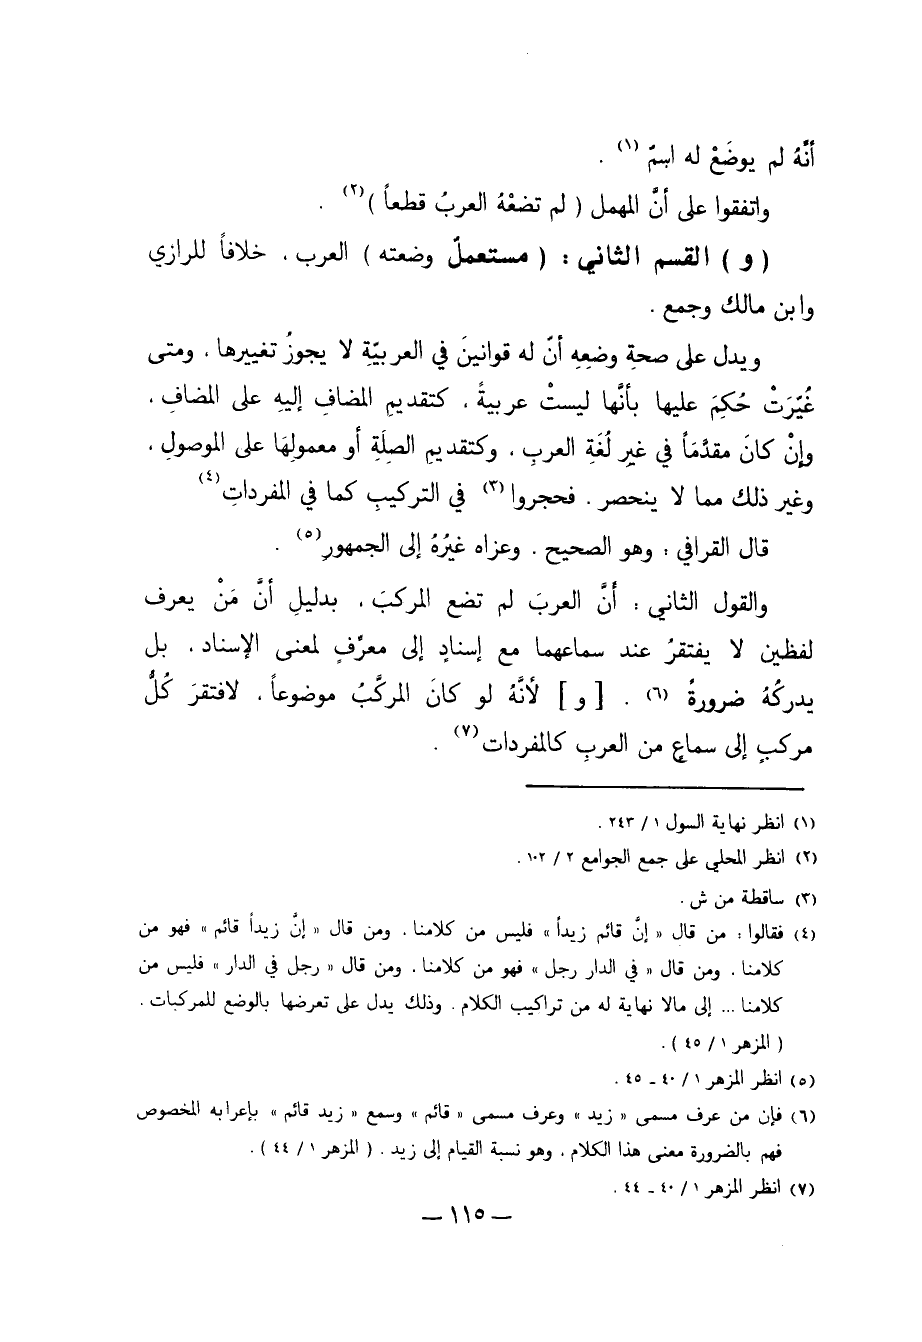 أنَّهُ لم يوضَعْ له اسمٌ (١) .
واتفقوا على أنَّ المهمل ( لم تضعْهُ العربُ قطعاً )(٢) .
( و ) القسم الثاني : ( مستعملٌ وضعته ) العرب ، خلافاً للرازي
وابن مالك وجمع .
ويدل على صحةِ وضعِهِ أنّ له قوانينَ في العربيّةِ لا يجوزُ تغييرها ، ومتى
غُيّرَتْ حُكِمَ عليها بأنَّها ليستْ عربيةً ، كتقديمِ المضافِ إليهِ على المضافِ ،
وإنْ كانَ مقدَّمَاً في غيرِ لُغَةِ العربِ ، وكتقديمِ الصلَةِ أو معمولِهَا على الموصولِ ،
وغير ذلك مما لا ينحصر . فحجروا (٣) في التركيبِ كما في المفرداتِ(٤)
قال القرافي : وهو الصحيح . وعزاه غيرُهُ إلى الجمهورِ(٥) .
والقول الثاني : أنَّ العربَ لم تضع المركبَ ، بدليلِ أنَّ مَنْ يعرف
لفظين لا يفتقرُ عند سماعهما مع إسنادٍ إلى معرِّفٍ لمعنى الإسناد ، بل
يدركُهُ ضرورةً (٦) . [ و ] لأنَّهُ لو كانَ المركَّبُ موضوعاً ، لافتقرَ كُلُّ
مركبٍ إلى سماعٍ من العربِ كالمفردات(٧) .
(١) انظر نهاية السول ١ / ٢٤٣ .
(٢) انظر المحلي على جمع الجوامع ٢ / ١٠٢ .
(٣) ساقطة من ش .
(٤) فقالوا : من قال « إنَّ قائم زيداً » فليس من كلامنا ، ومن قال « إنَّ زيداً قائم » فهو من
كلامنا . ومن قال « في الدار رجل » فهو من كلامنا ، ومن قال « رجل في الدار » فليس من
كلامنا ... إلى مالا نهاية له من تراكيب الكلام . وذلك يدل على تعرضها بالوضع للمركبات .
( المزهر ١ / ٤٥ ) .
(٥) انظر المزهر ١ / ٤٠ ـ ٤٥ .
(٦) فإن من عرف مسمى « زيد » وعرف مسمى « قائم » وسمع « زيد قائم » بإعرابه المخصوص
فهم بالضرورة معنى هذا الكلام ، وهو نسبة القيام إلى زيد . ( المزهر ١ / ٤٤ ) .
(٧) انظر المزهر ١ / ٤٠ ـ ٤٤ .
— ١١٥ —